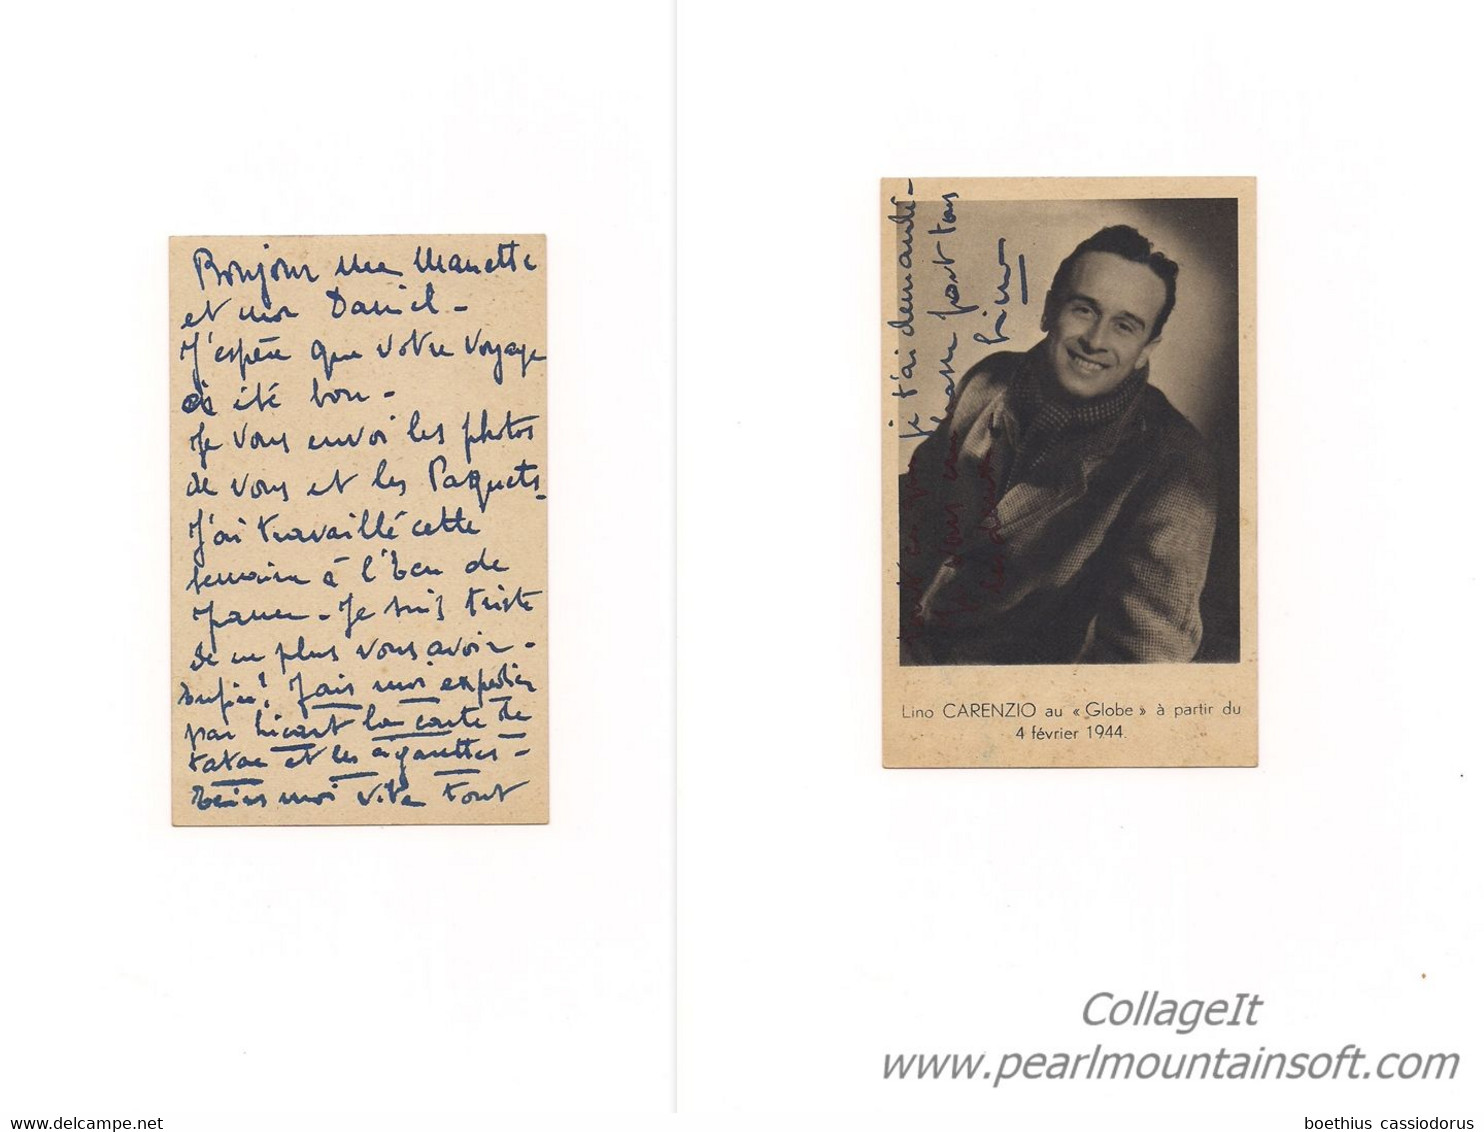 Bonjour ma Manette
et mon Daniel -
J'espère que votre voyage
a été bon -
Je vous envoi les photos
de vous et les Paquets -
J'ai travaillé cette
semaine à l'
Je suis triste
de ne plus vous avoir -
Fais moi expédier
par la carte de
tabac et les cigarettes -
moi vite tout
je t'ai demandé -
vous embrasse fort tous
Lino
Lino CARENZIO au « Globe » à partir du
4 février 1944.
CollageIt
www.pearlmountainsoft.com
delcampe.net
boethius cassiodorus